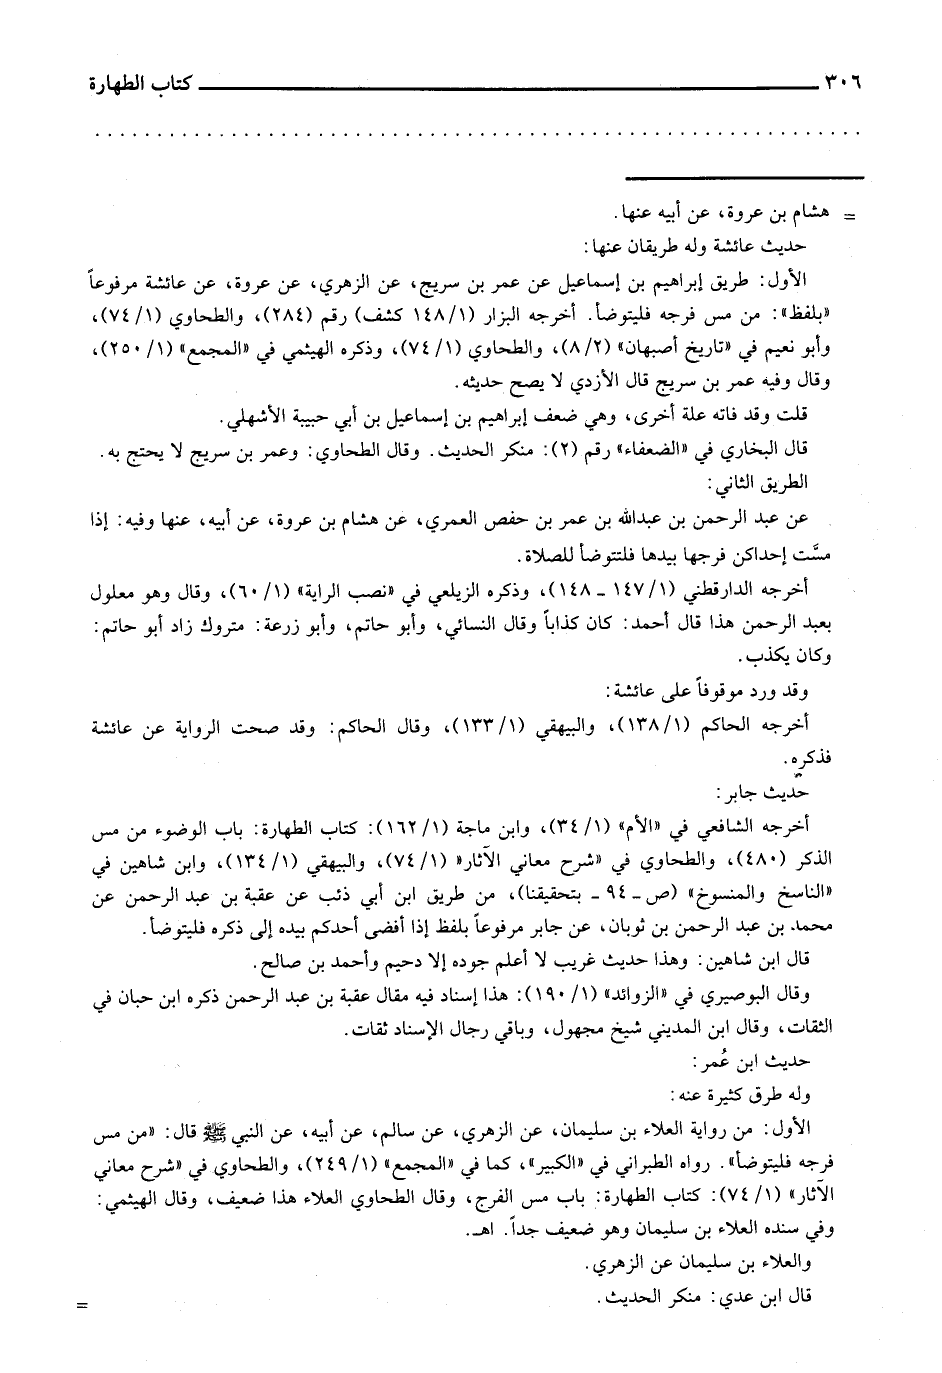 ٣٠٦ كتاب الطهارة
= هشام بن عروة، عن أبيه عنها.
حديث عائشة وله طريقان عنها:
الأول: طريق إبراهيم بن إسماعيل عن عمر بن سريج، عن الزهري، عن عروة، عن عائشة مرفوعاً
«بلفظ»: من مس فرجه فليتوضأ. أخرجه البزار (١/ ١٤٨ كشف) رقم (٢٨٤)، والطحاوي (١/ ٧٤)،
وأبو نعيم في «تاريخ أصبهان» (٢/ ٨)، والطحاوي (١/ ٧٤)، وذكره الهيثمي في «المجمع» (١/ ٢٥٠)،
وقال وفيه عمر بن سريج قال الأزدي لا يصح حديثه.
قلت وقد فاته علة أخرى، وهي ضعف إبراهيم بن إسماعيل بن أبي حبيبة الأشهلي.
قال البخاري في «الضعفاء» رقم (٢): منكر الحديث. وقال الطحاوي: وعمر بن سريج لا يحتج به.
الطريق الثاني:
عن عبد الرحمن بن عبدالله بن عمر بن حفص العمري، عن هشام بن عروة، عن أبيه، عنها وفيه: إذا
مسَّت إحداكن فرجها بيدها فلتتوضأ للصلاة.
أخرجه الدارقطني (١/ ١٤٧ ـ ١٤٨)، وذكره الزيلعي في «نصب الراية» (١/ ٦٠)، وقال وهو معلول
بعبد الرحمن هذا قال أحمد: كان كذاباً وقال النسائي، وأبو حاتم، وأبو زرعة: متروك زاد أبو حاتم:
وكان يكذب.
وقد ورد موقوفاً على عائشة:
أخرجه الحاكم (١/ ١٣٨)، والبيهقي (١/ ١٣٣)، وقال الحاكم: وقد صحت الرواية عن عائشة
فذكره.
حديث جابر:
أخرجه الشافعي في «الأم» (١/ ٣٤)، وابن ماجة (١/ ١٦٢): كتاب الطهارة: باب الوضوء من مس
الذكر (٤٨٠)، والطحاوي في «شرح معاني الآثار» (١/ ٧٤)، والبيهقي (١/ ١٣٤)، وابن شاهين في
«الناسخ والمنسوخ» (ص ـ ٩٤ ـ بتحقيقنا)، من طريق ابن أبي ذئب عن عقبة بن عبد الرحمن عن
محمد بن عبد الرحمن بن ثوبان، عن جابر مرفوعاً بلفظ إذا أفضى أحدكم بيده إلى ذكره فليتوضأ.
قال ابن شاهين: وهذا حديث غريب لا أعلم جوده إلا دحيم وأحمد بن صالح.
وقال البوصيري في «الزوائد» (١/ ١٩٠): هذا إسناد فيه مقال عقبة بن عبد الرحمن ذكره ابن حبان في
الثقات، وقال ابن المديني شيخ مجهول، وباقي رجال الإسناد ثقات.
حديث ابن عُمر:
وله طرق كثيرة عنه:
الأول: من رواية العلاء بن سليمان، عن الزهري، عن سالم، عن أبيه، عن النبي ﷺ قال: «من مس
فرجه فليتوضأ». رواه الطبراني في «الكبير»، كما في «المجمع» (١/ ٢٤٩)، والطحاوي في «شرح معاني
الآثار» (١/ ٧٤): كتاب الطهارة: باب مس الفرج، وقال الطحاوي العلاء هذا ضعيف، وقال الهيثمي:
وفي سنده العلاء بن سليمان وهو ضعيف جداً. اهـ.
والعلاء بن سليمان عن الزهري.
قال ابن عدي: منكر الحديث. =